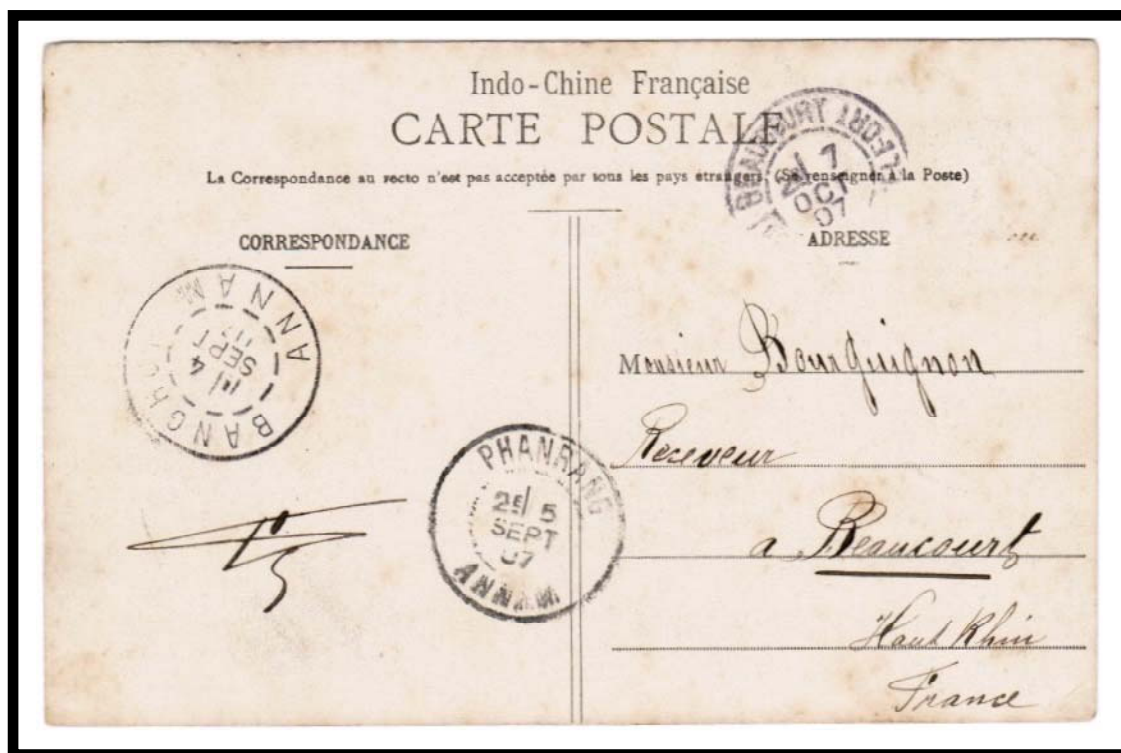 Indo-Chine Française
CARTE POSTALE
La Correspondance au recto n'est pas acceptée par tous les pays étrangers. (Se renseigner à la Poste)
CORRESPONDANCE
ADRESSE
BEAUCOURT BELFORT
7
OCT
07
ANNAM
4
SEPT
PHANRANG
5
SEPT
07
ANNAM
Monsieur Bourguignon
Receveur
a Beaucourt
Haut Rhin
France